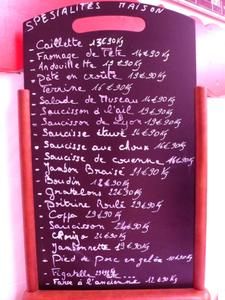 SPECIALITES MAISON
- Caillette 13€90Kg
- Fromage de Tête 14€90Kg
- Andouillette 19€90Kg
- Pâté en croûte 19€90Kg
- Terrine 16€90Kg
- Salade de Museau 14€90Kg
- Saucisson à l'ail 19€90Kg
- Saucisson de Lyon 19€90Kg
- Saucisse étuvé 14€90Kg
- Saucisse aux choux 16€90Kg
- Saucisse de couenne 16€90Kg
- Jambon Braisé 21€90Kg
- Boudin 12€90Kg
- Grattelons 22€90Kg
- Poitrine Roulé 19€90Kg
- Coppa 29€90Kg
- Saucisson 24€90Kg
- Chorizo 21€90Kg
- Jambonnette 19€90Kg
- Pied de porc en gelée 10€90Kg
- Figatelle
- Farce à l'ancienne 12€90Kg